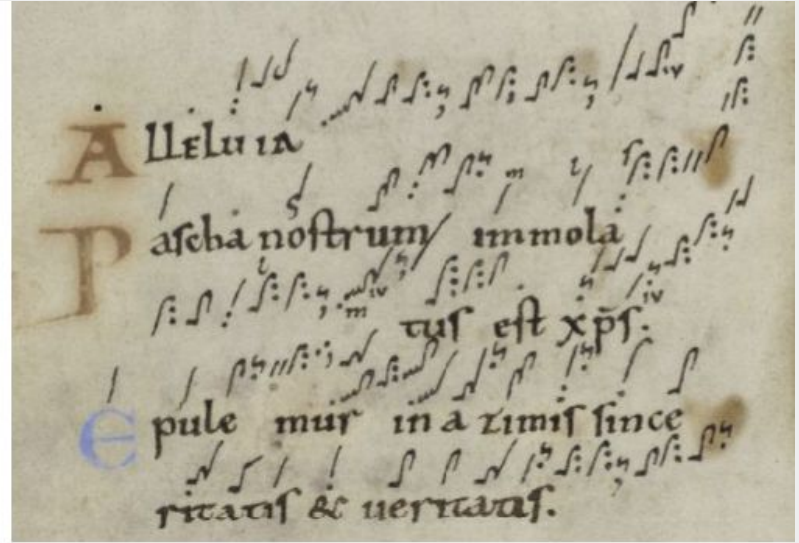 Alleluia
Pascha nostrum immola
tus est xp̄s.
Epule mur in azimis since
ritatis & ueritatis.